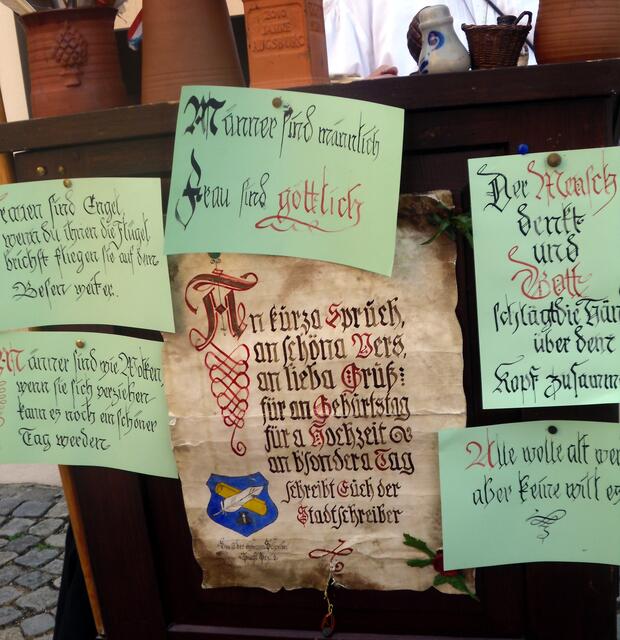 2000
JAHRE
AUGSBURG
Männer sind männlich
Frau sind göttlich
Frauen sind Engel
wenn du ihnen die Flügel
brichst fliegen sie auf dem
Besen weiter.
Männer sind wie Wolken
wenn sie sich verziehen
kann es noch ein schöner
Tag werden
An kürza Sprüch,
an schöna Vers,
an lieba Grüß:
für an Gebürtstag
für a Hochzeit
an bsondera Tag
schreibt Eüch der
Stadtschreiber
Der Mensch
denkt
und
Gott
schlägt die Hän
über dem
Kopf zusamm
Alle wolle alt wer
aber keine will es